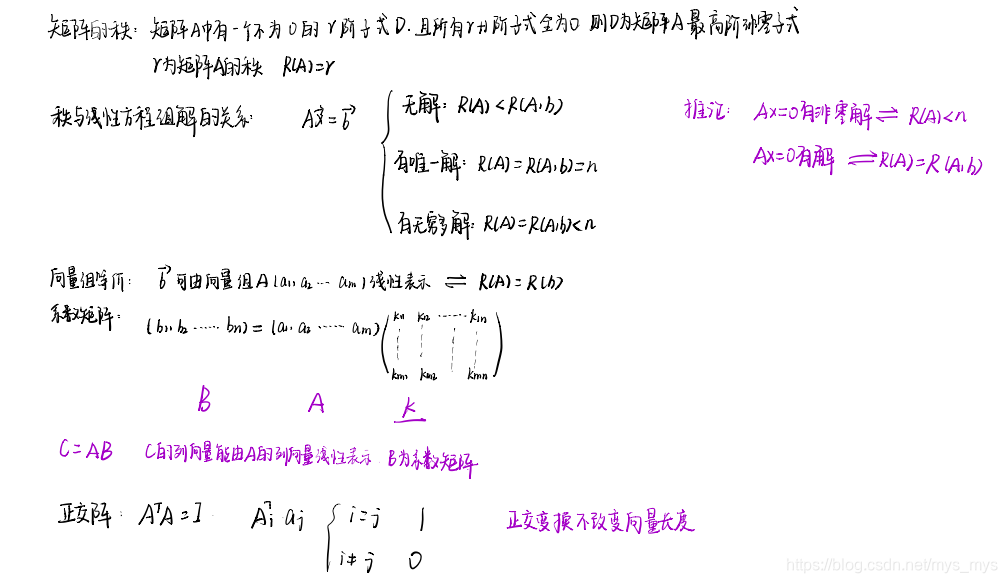 矩阵的秩: 矩阵A中有一个不为0的r阶子式D. 且所有r+1阶子式全为0 则D为矩阵A最高阶非零子式
r为矩阵A的秩 R(A)=r
秩与线性方程组解的关系: Ax⃗=b⃗
无解: R(A)<R(A,b)
有唯一解: R(A)=R(A,b)=n
有无穷多解: R(A)=R(A,b)<n
推论: Ax=0有非零解⇌R(A)<n
Ax=0有解⇌R(A)=R(A,b)
向量组等价: b⃗可由向量组A(a₁, a₂ … am)线性表示 ⇌ R(A)=R(b)
系数矩阵: (b₁, b₂ …… bn) = (a₁, a₂ …… am)
k₁₁ k₁₂ …… k₁n
km₁ km₂ kmn
B A K
C=AB C的列向量能由A的列向量线性表示 B为系数矩阵
正交阵: AᵀA=I Aᵢᵀ aⱼ
i=j 1
i≠j 0
正交变换不改变向量长度
https://blog.csdn.net/mys_mys